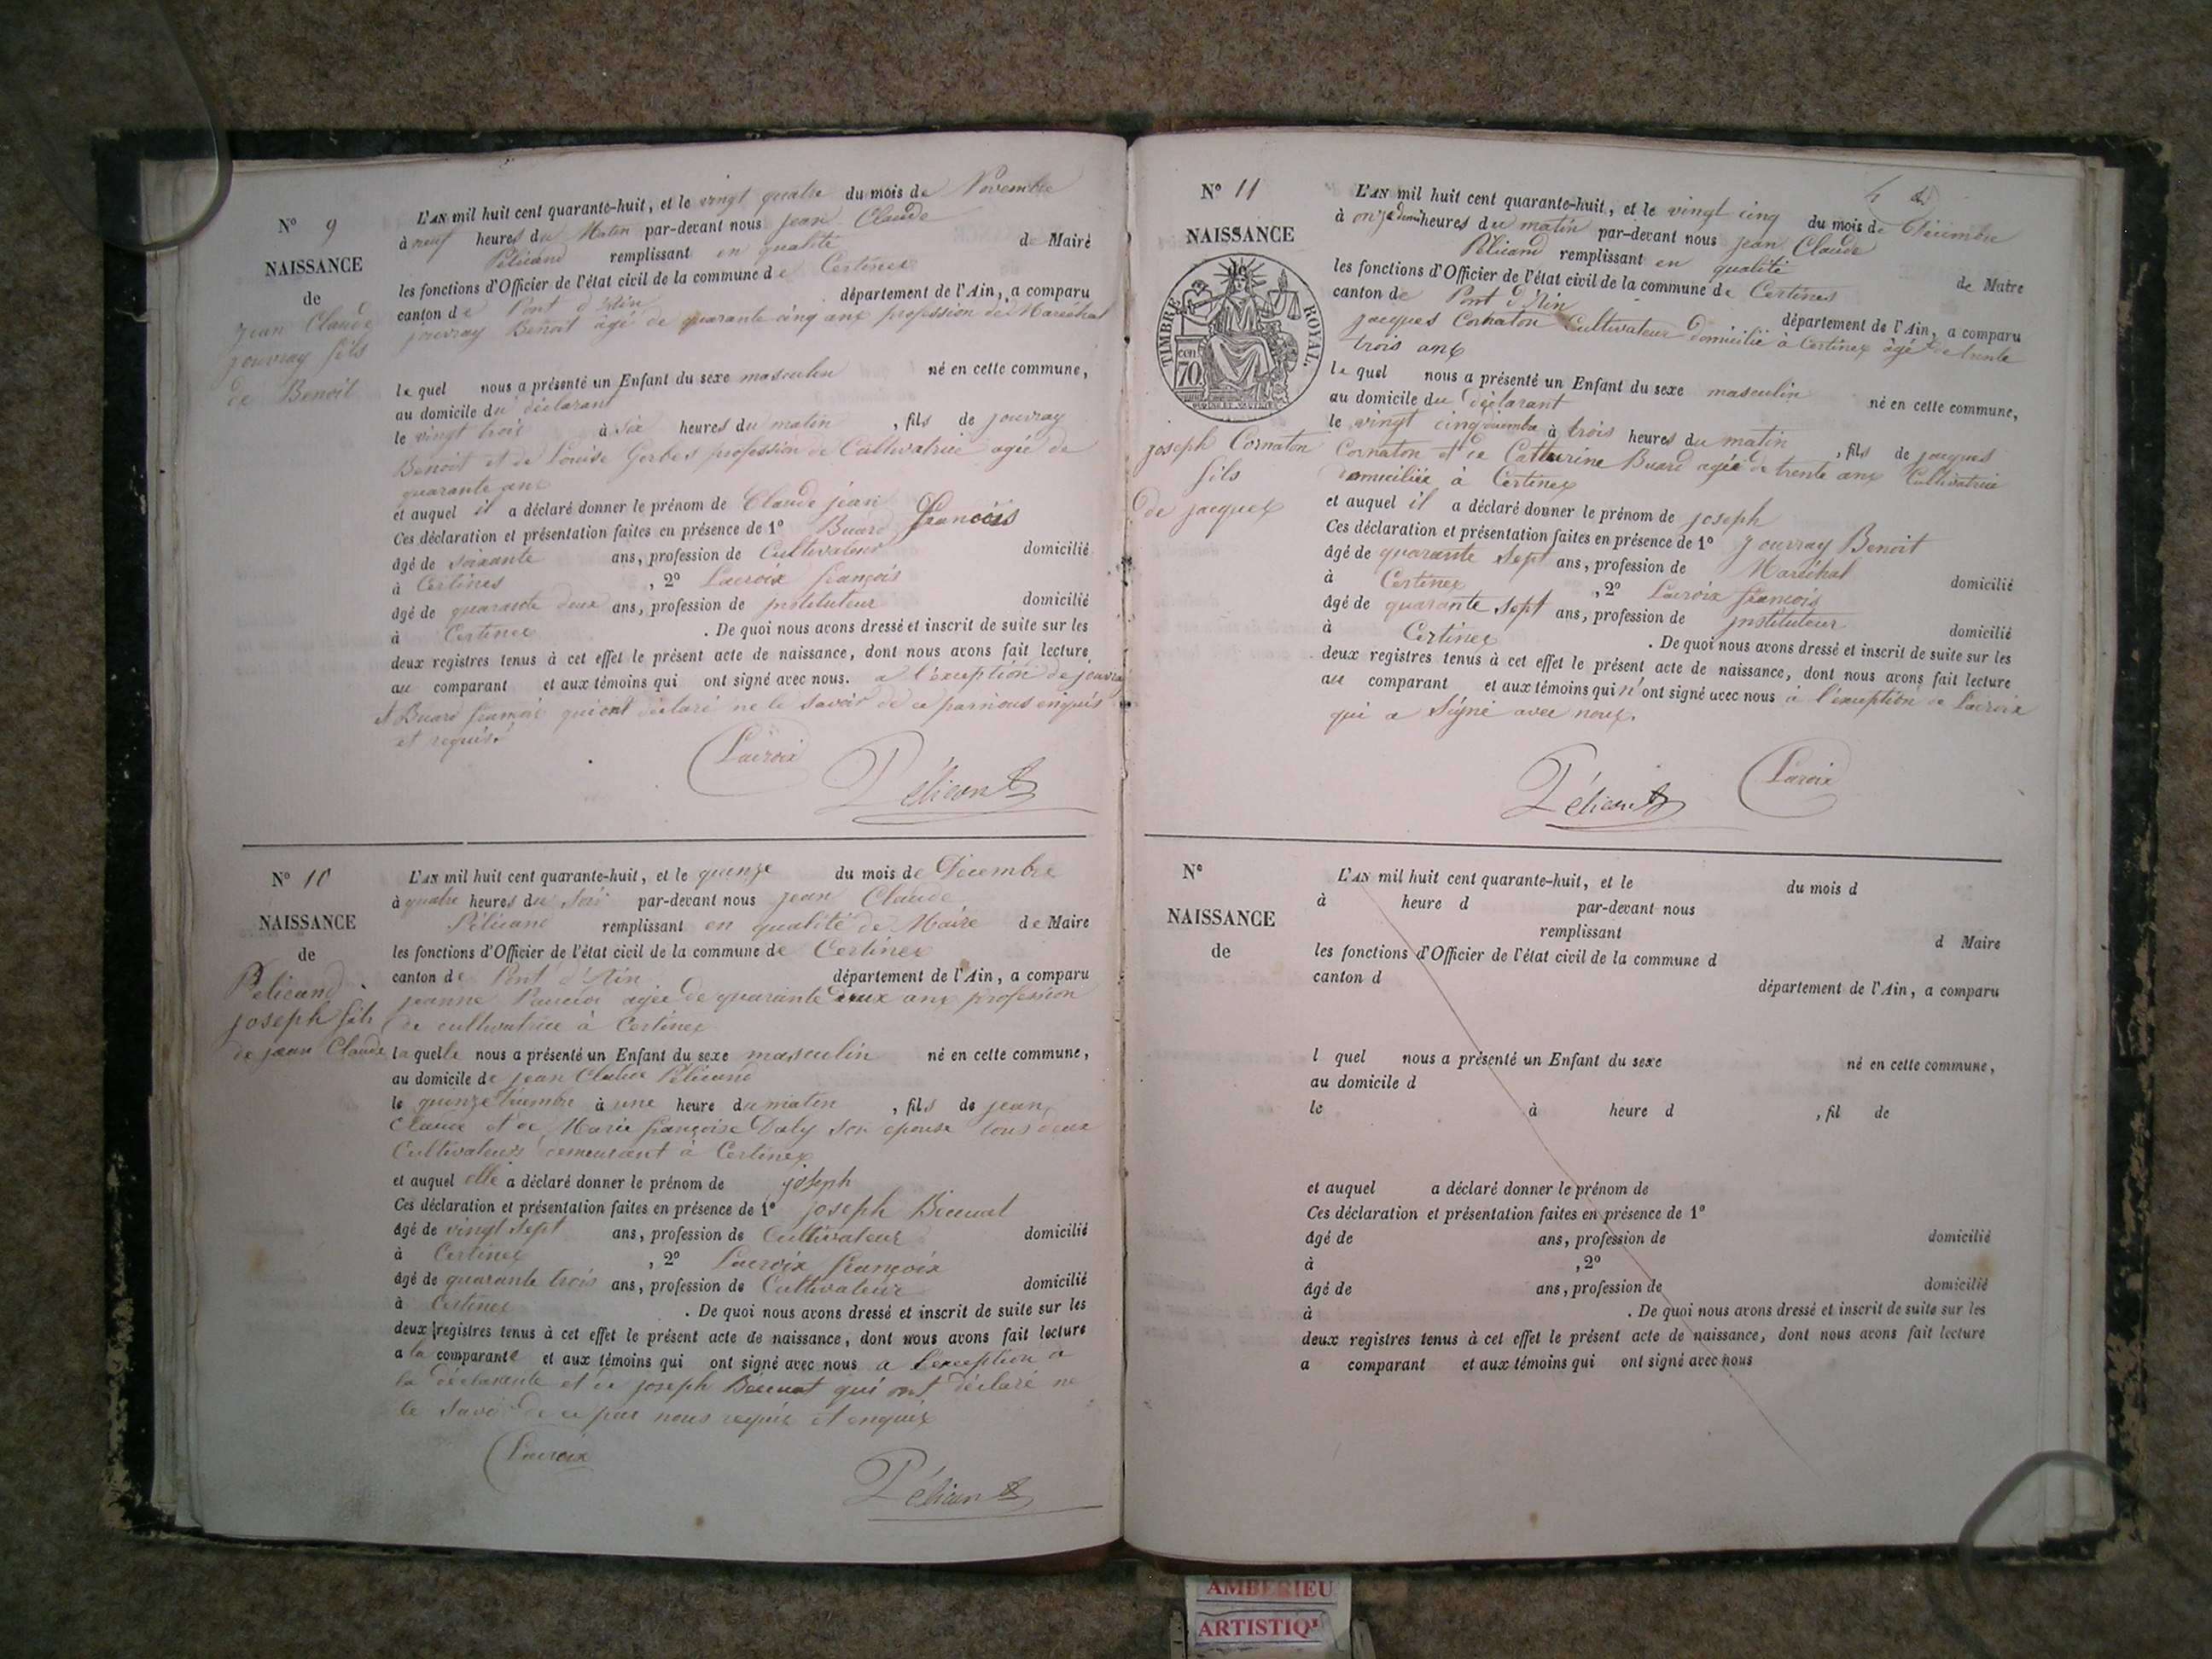 N° 9
NAISSANCE
de
Jean Claude
jouvray fils
de Benoit
L'AN mil huit cent quarante-huit, et le vingt quatre du mois de Novembre
à neuf heures du Matin par-devant nous jean Claude
Pélicand remplissant en qualité de Maire
les fonctions d'Officier de l'état civil de la commune de Certines
canton de Pont d'Ain département de l'Ain, a comparu
jouvray Benoit âgé de quarante cinq ans profession de Maréchal
le quel nous a présenté un Enfant du sexe masculin né en cette commune,
au domicile du déclarant
le vingt trois à six heures du matin, fils de jouvray
Benoit et de Louise profession de Cultivatrice agée de
quarante ans
et auquel il a déclaré donner le prénom de Claude jean
Ces déclaration et présentation faites en présence de 1° Buard François
âgé de soixante ans, profession de Cultivateur domicilié
à Certines, 2° Lacroix françois
âgé de quarante deux ans, profession de instituteur domicilié
à Certines. De quoi nous avons dressé et inscrit de suite sur les
deux registres tenus à cet effet le présent acte de naissance, dont nous avons fait lecture
au comparant et aux témoins qui ont signé avec nous. a l'exception de jouvray
et Buard francois qui ont déclaré ne le savoir de ce par nous enquis
et requis
Lacroix
Pélicand
N° 10
NAISSANCE
de
Pelicand
joseph fils
de jean Claude
L'AN mil huit cent quarante-huit, et le quinze du mois de Décembre
à quatre heures du soir par-devant nous jean Claude
Pélicand remplissant en qualité de Maire de Maire
les fonctions d'Officier de l'état civil de la commune de Certines
canton de Pont d'Ain département de l'Ain, a comparu
jeanne agée de quarante deux ans profession
de cultivatrice à Certines
laquelle nous a présenté un Enfant du sexe masculin né en cette commune,
au domicile de jean Claude Pélicand
le quinze à une heure du matin, fils de jean
Claude et de Marie françoise Daly son épouse tous deux
Cultivateurs demeurant à Certines
et auquel elle a déclaré donner le prénom de joseph
Ces déclaration et présentation faites en présence de 1° joseph
âgé de vingt sept ans, profession de Cultivateur domicilié
à Certines, 2° Lacroix françois
âgé de quarante trois ans, profession de Cultivateur domicilié
à Certines. De quoi nous avons dressé et inscrit de suite sur les
deux registres tenus à cet effet le présent acte de naissance, dont nous avons fait lecture
a la comparante et aux témoins qui ont signé avec nous a l'exception de
la déclarante et de joseph qui ont déclaré ne
le savoir de ce par nous requis et enquis
Lacroix
Pélicand
N° 11
NAISSANCE
de
TIMBRE ROYAL
70
joseph Cornaton
fils
de jacques
L'AN mil huit cent quarante-huit, et le vingt cinq du mois de Décembre
à onze heures du matin par-devant nous jean Claude
Pélicand remplissant en qualité de Maire
les fonctions d'Officier de l'état civil de la commune de Certines
canton de Pont d'Ain département de l'Ain, a comparu
jacques Cornaton Cultivateur domicilié à Certines âgé de trente
trois ans
le quel nous a présenté un Enfant du sexe masculin né en cette commune,
au domicile du déclarant
le vingt cinq à trois heures du matin, fils de jacques
Cornaton et de Catherine Buard agée de trente ans Cultivatrice
domiciliée à Certines
et auquel il a déclaré donner le prénom de joseph
Ces déclaration et présentation faites en présence de 1° jouvray Benoit
âgé de quarante sept ans, profession de Maréchal domicilié
à Certines, 2° Lacroix françois
âgé de quarante sept ans, profession de instituteur domicilié
à Certines. De quoi nous avons dressé et inscrit de suite sur les
deux registres tenus à cet effet le présent acte de naissance, dont nous avons fait lecture
au comparant et aux témoins qui n'ont signé avec nous à l'exception de Lacroix
qui a signé avec nous.
Pélicand
Lacroix
N°
NAISSANCE
de
L'AN mil huit cent quarante-huit, et le du mois d
à heure d par-devant nous
remplissant d Maire
les fonctions d'Officier de l'état civil de la commune d
canton d département de l'Ain, a comparu
l quel nous a présenté un Enfant du sexe né en cette commune,
au domicile d
le à heure d, fil de
et auquel a déclaré donner le prénom de
Ces déclaration et présentation faites en présence de 1°
âgé de ans, profession de domicilié
à, 2°
âgé de ans, profession de domicilié
à. De quoi nous avons dressé et inscrit de suite sur les
deux registres tenus à cet effet le présent acte de naissance, dont nous avons fait lecture
a comparant et aux témoins qui ont signé avec nous
AMBERIEU
ARTISTIQ